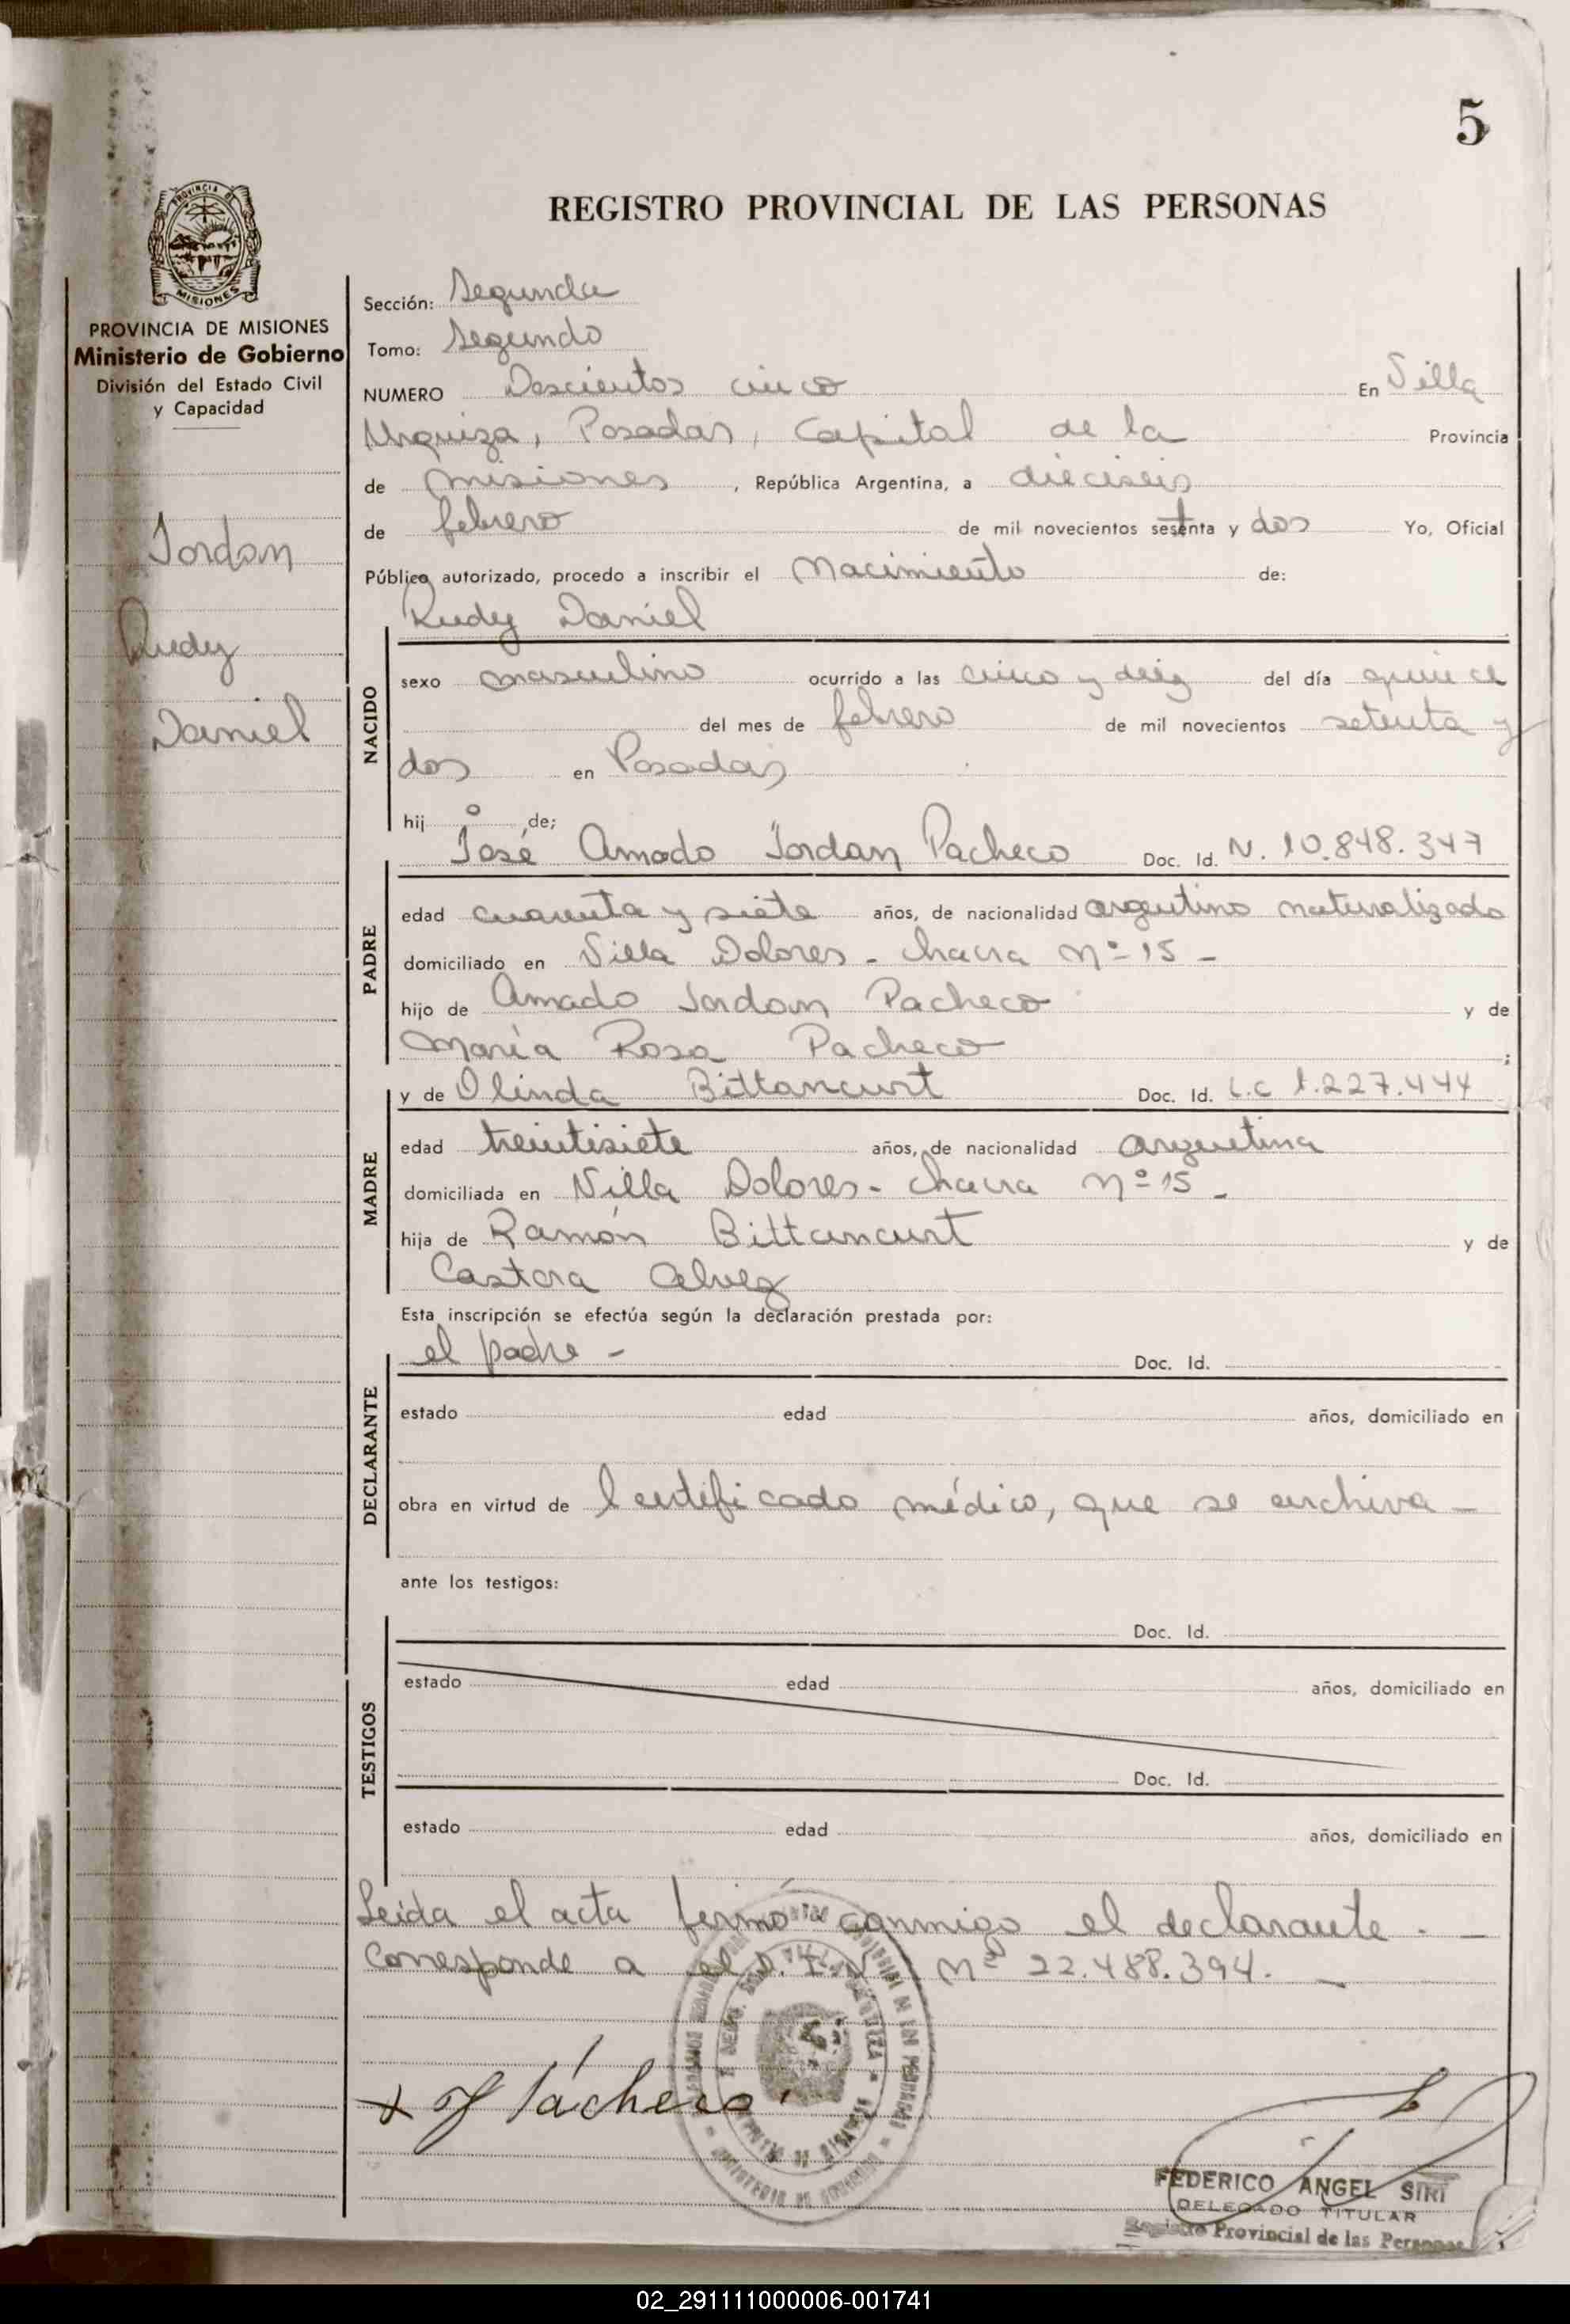 5
REGISTRO PROVINCIAL DE LAS PERSONAS
PROVINCIA DE
MISIONES
PROVINCIA DE MISIONES
Ministerio de Gobierno
División del Estado Civil
y Capacidad
Jordan
Rudy
Daniel
Sección: Segunda
Tomo: Segundo
NUMERO Doscientos cinco En Villa
Urquiza, Posadas, Capital de la Provincia
de Misiones, República Argentina, a dieciseis
de febrero de mil novecientos setenta y dos Yo, Oficial
Público autorizado, procedo a inscribir el Nacimiento de:
Rudy Daniel
NACIDO
sexo masculino ocurrido a las cinco y diez del día quince
del mes de febrero de mil novecientos setenta y
dos en Posadas
hij o de;
José Amado Jordan Pacheco Doc. Id. N. 10.848.347
PADRE
edad cuarenta y siete años, de nacionalidad argentino naturalizado
domiciliado en Villa Dolores - chacra Nº 15 -
hijo de Amado Jordan Pacheco y de
María Rosa Pacheco ;
y de Olinda Bittancurt Doc. Id. L.C 1.227.444
MADRE
edad treintisiete años, de nacionalidad argentina
domiciliada en Villa Dolores - chacra Nº 15 -
hija de Ramón Bittancurt y de
Castora Alvez
Esta inscripción se efectúa según la declaración prestada por:
el padre - Doc. Id.
DECLARANTE
estado edad años, domiciliado en
obra en virtud de Certificado médico, que se archiva -
ante los testigos:
Doc. Id.
TESTIGOS
estado edad años, domiciliado en
Doc. Id.
estado edad años, domiciliado en
Leida el acta firmó conmigo el declarante. -
Corresponde a el D.N.I. Nº 22.488.394. -
x J Pacheco
FEDERICO ANGEL SIRI
DELEGADO TITULAR
Registro Provincial de las Personas
02_291111000006-001741